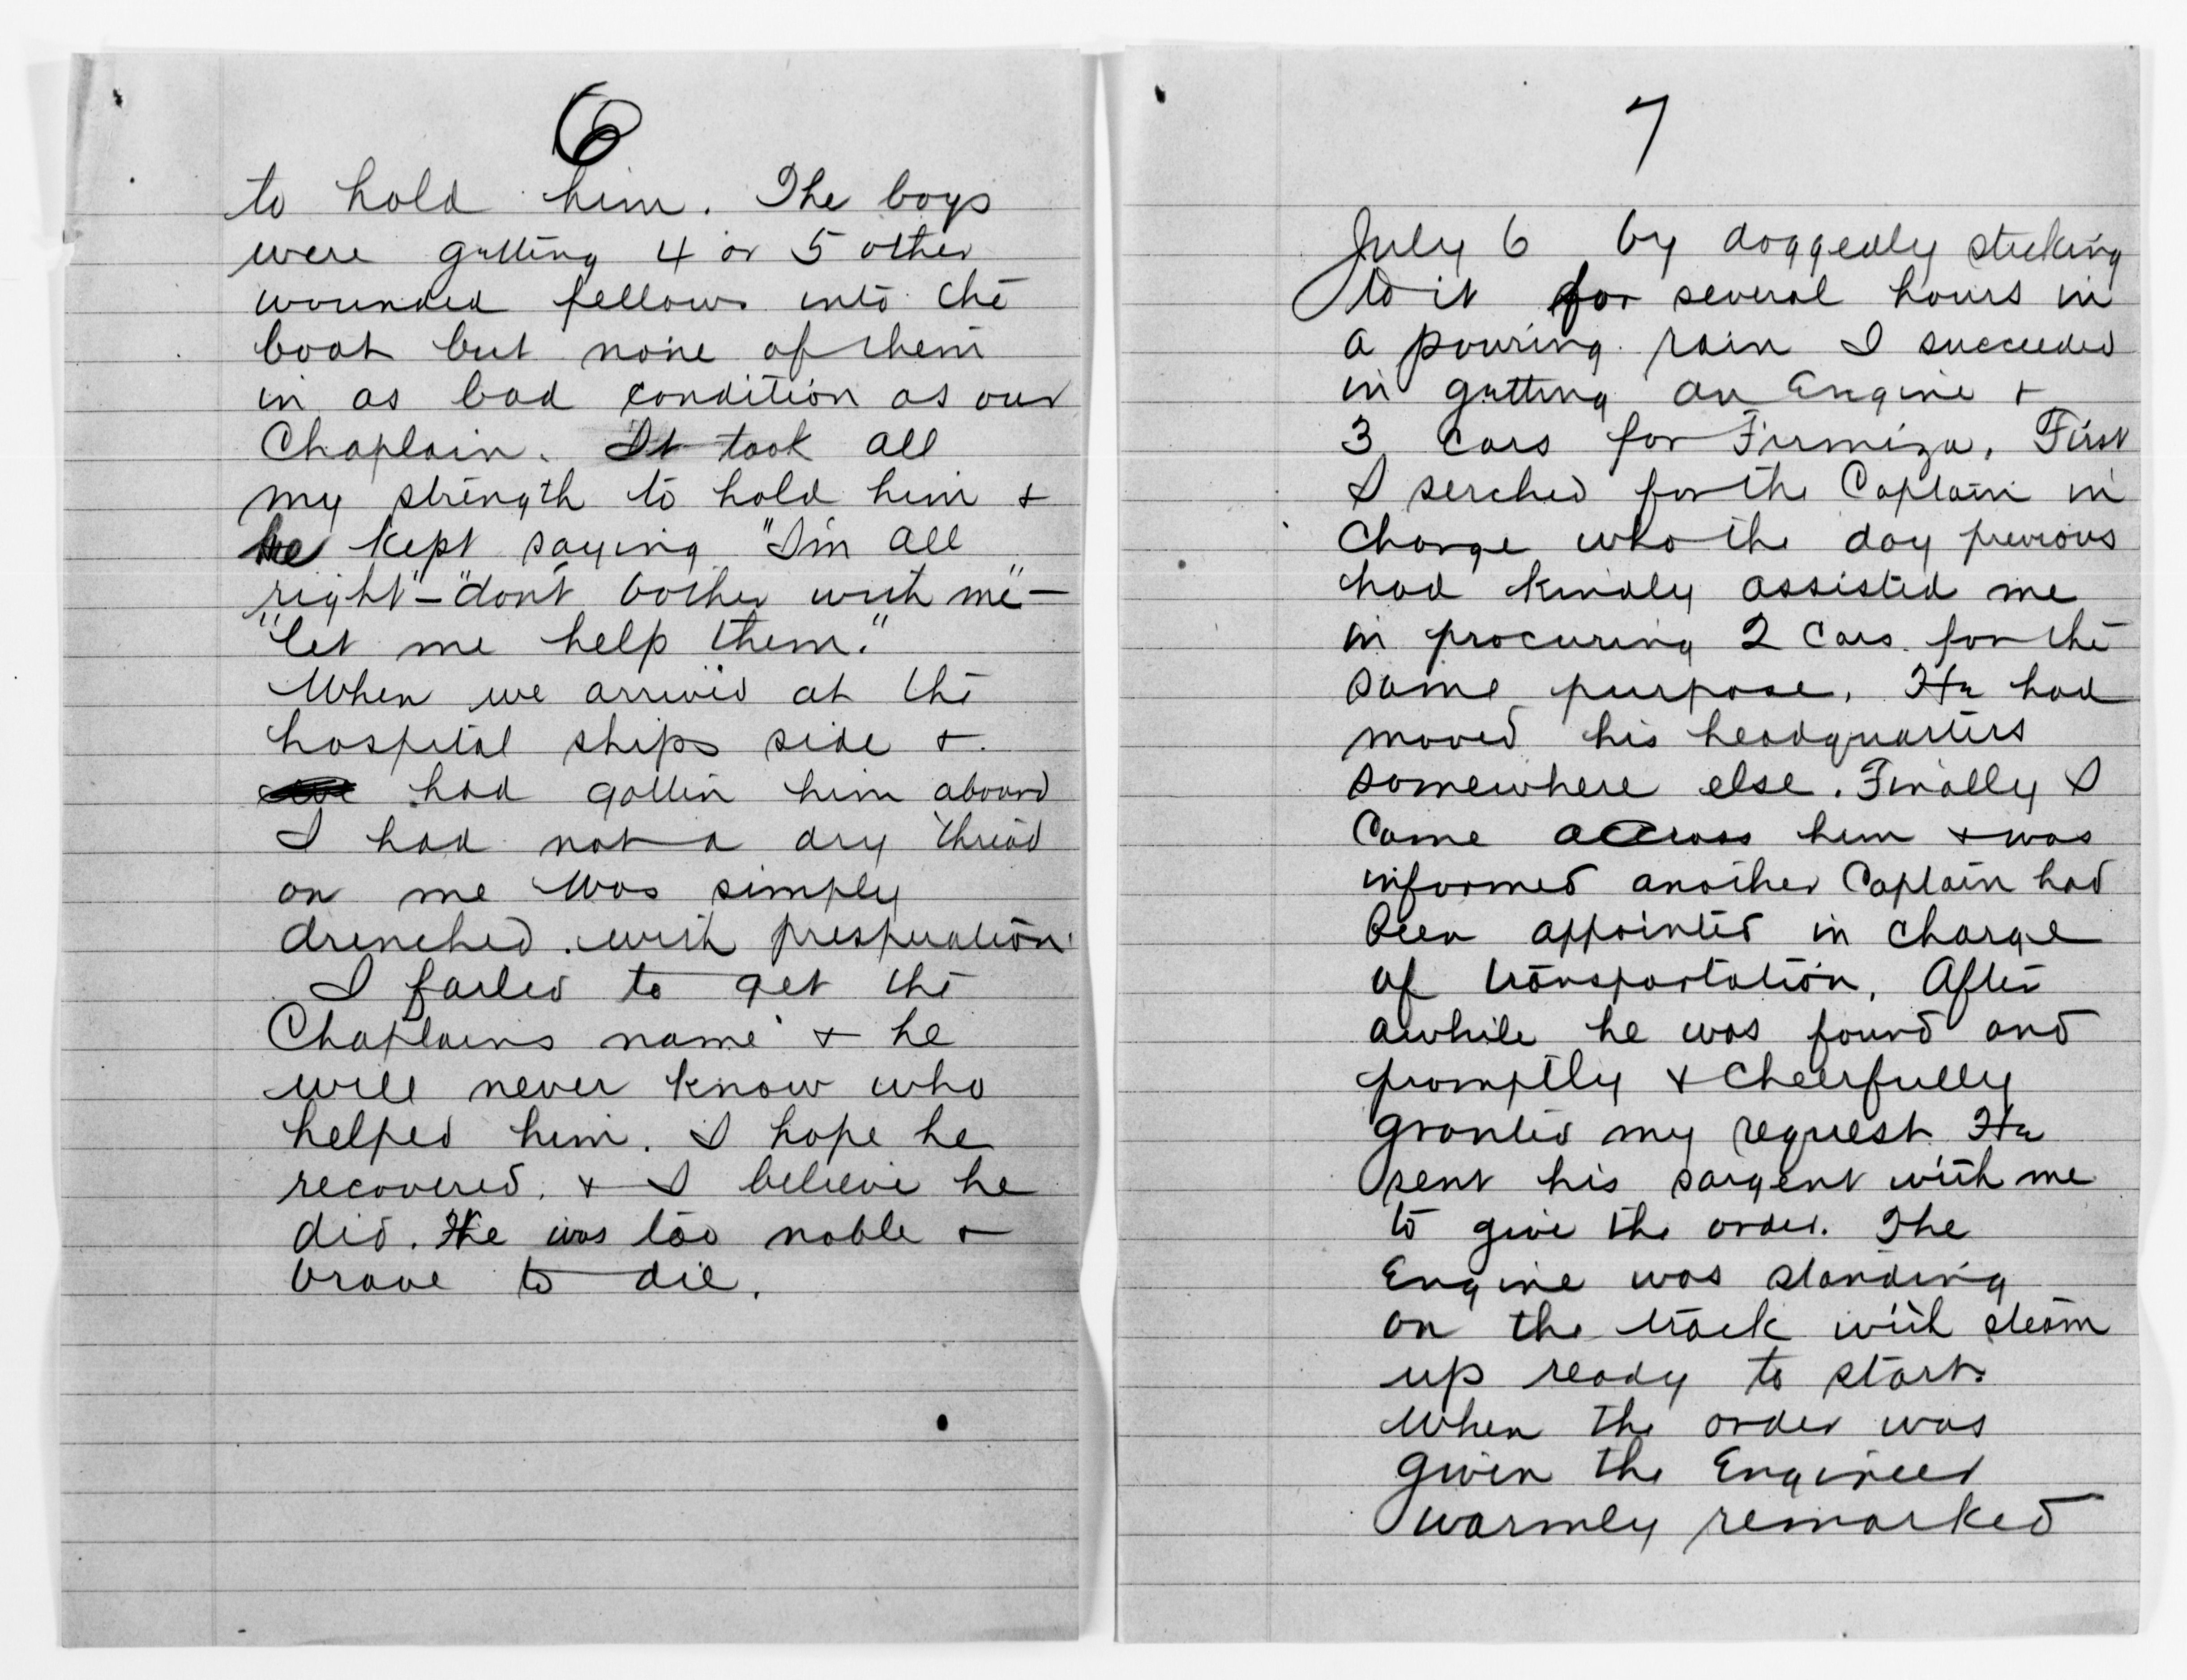 6
to hold him. The boys
were getting 4 or 5 other
wounded fellows into the
boat but none of them
in as bad condition as our
Chaplain. It took all
my strength to hold him &
he kept saying "I'm all
right" – "don't bother with me" –
"let me help them."
When we arrived at the
hospital ships side &
had gotten him aboard
I had not a dry thread
on me was simply
drenched with prespiration.
I failed to get the
Chaplains name & he
will never know who
helped him. I hope he
recovered. & I believe he
did. He was too noble &
brave to die.
7
July 6 by doggedly sticking
to it for several hours in
a pouring rain I succeeded
in getting an Engine &
3 cars for Firmiza. First
I serched for the Captain in
charge who the day previous
had kindly assisted me
in procuring 2 cars for the
same purpose. He had
moved his headquarters
somewhere else. Finally I
came across him & was
informed another Captain had
been appointed in charge
of transportation. After
awhile he was found and
promptly & cheerfully
granted my request. He
sent his sargent with me
to give the order. The
Engine was standing
on the track with steam
up ready to start.
When the order was
given the Engineer
warmly remarked